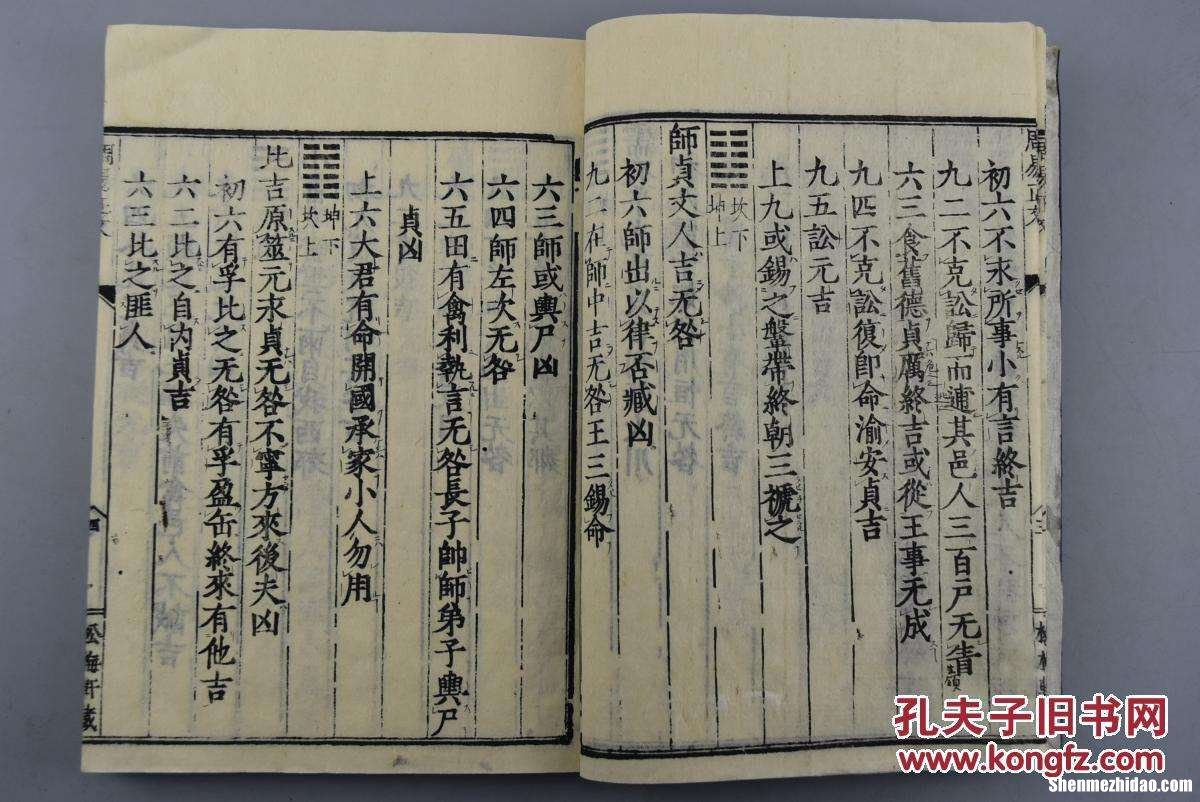 初六不永所事小有言終吉
九二不克訟歸而逋其邑人三百戸无眚
六三食舊德貞厲終吉或從王事无成
九四不克訟復卽命渝安貞吉
九五訟元吉
上九或錫之鞶帶終朝三褫之
坎下
坤上
師貞丈人吉无咎
初六師出以律否臧凶
九二在師中吉无咎王三錫命
六三師或輿尸凶
六四師左次无咎
六五田有禽利執言无咎長子帥師弟子輿尸
貞凶
上六大君有命開國承家小人勿用
坤下
坎上
比吉原筮元永貞无咎不寧方來後夫凶
初六有孚比之无咎有孚盈缶終來有他吉
六二比之自內貞吉
六三比之匪人
松梅軒藏
孔夫子旧书网
www.kongfz.com
Shenmezhidao.com